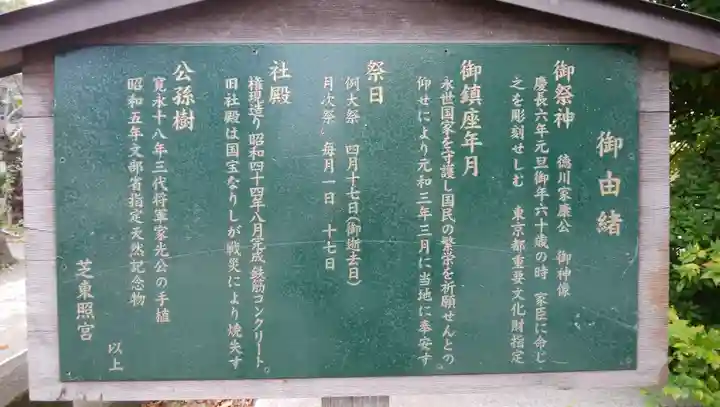 御由緒
御祭神　徳川家康公　御神像
慶長六年元旦御年六十歳の時　家臣に命じ
之を彫刻せしむ　東京都重要文化財指定
御鎮座年月
永世国家を守護し国民の繁栄を祈願せんとの
仰せにより元和三年三月に当地に奉安す。
祭日
例大祭　四月十七日（御逝去日）
月次祭　毎月一日　十七日
社殿
権現造り　昭和四十四年八月完成　鉄筋コンクリート。
旧社殿は国宝なりしが戦災により焼失す
公孫樹
寛永十八年三代将軍家光公の手植
昭和五年文部省指定天然記念物
以上
芝東照宮